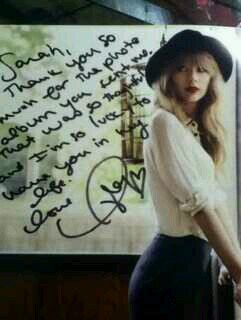 Sarah,
Thank you so
much for the photo
album you sent me.
That was so thoughtful
and I'm so lucky to
have you in my
life.
Love